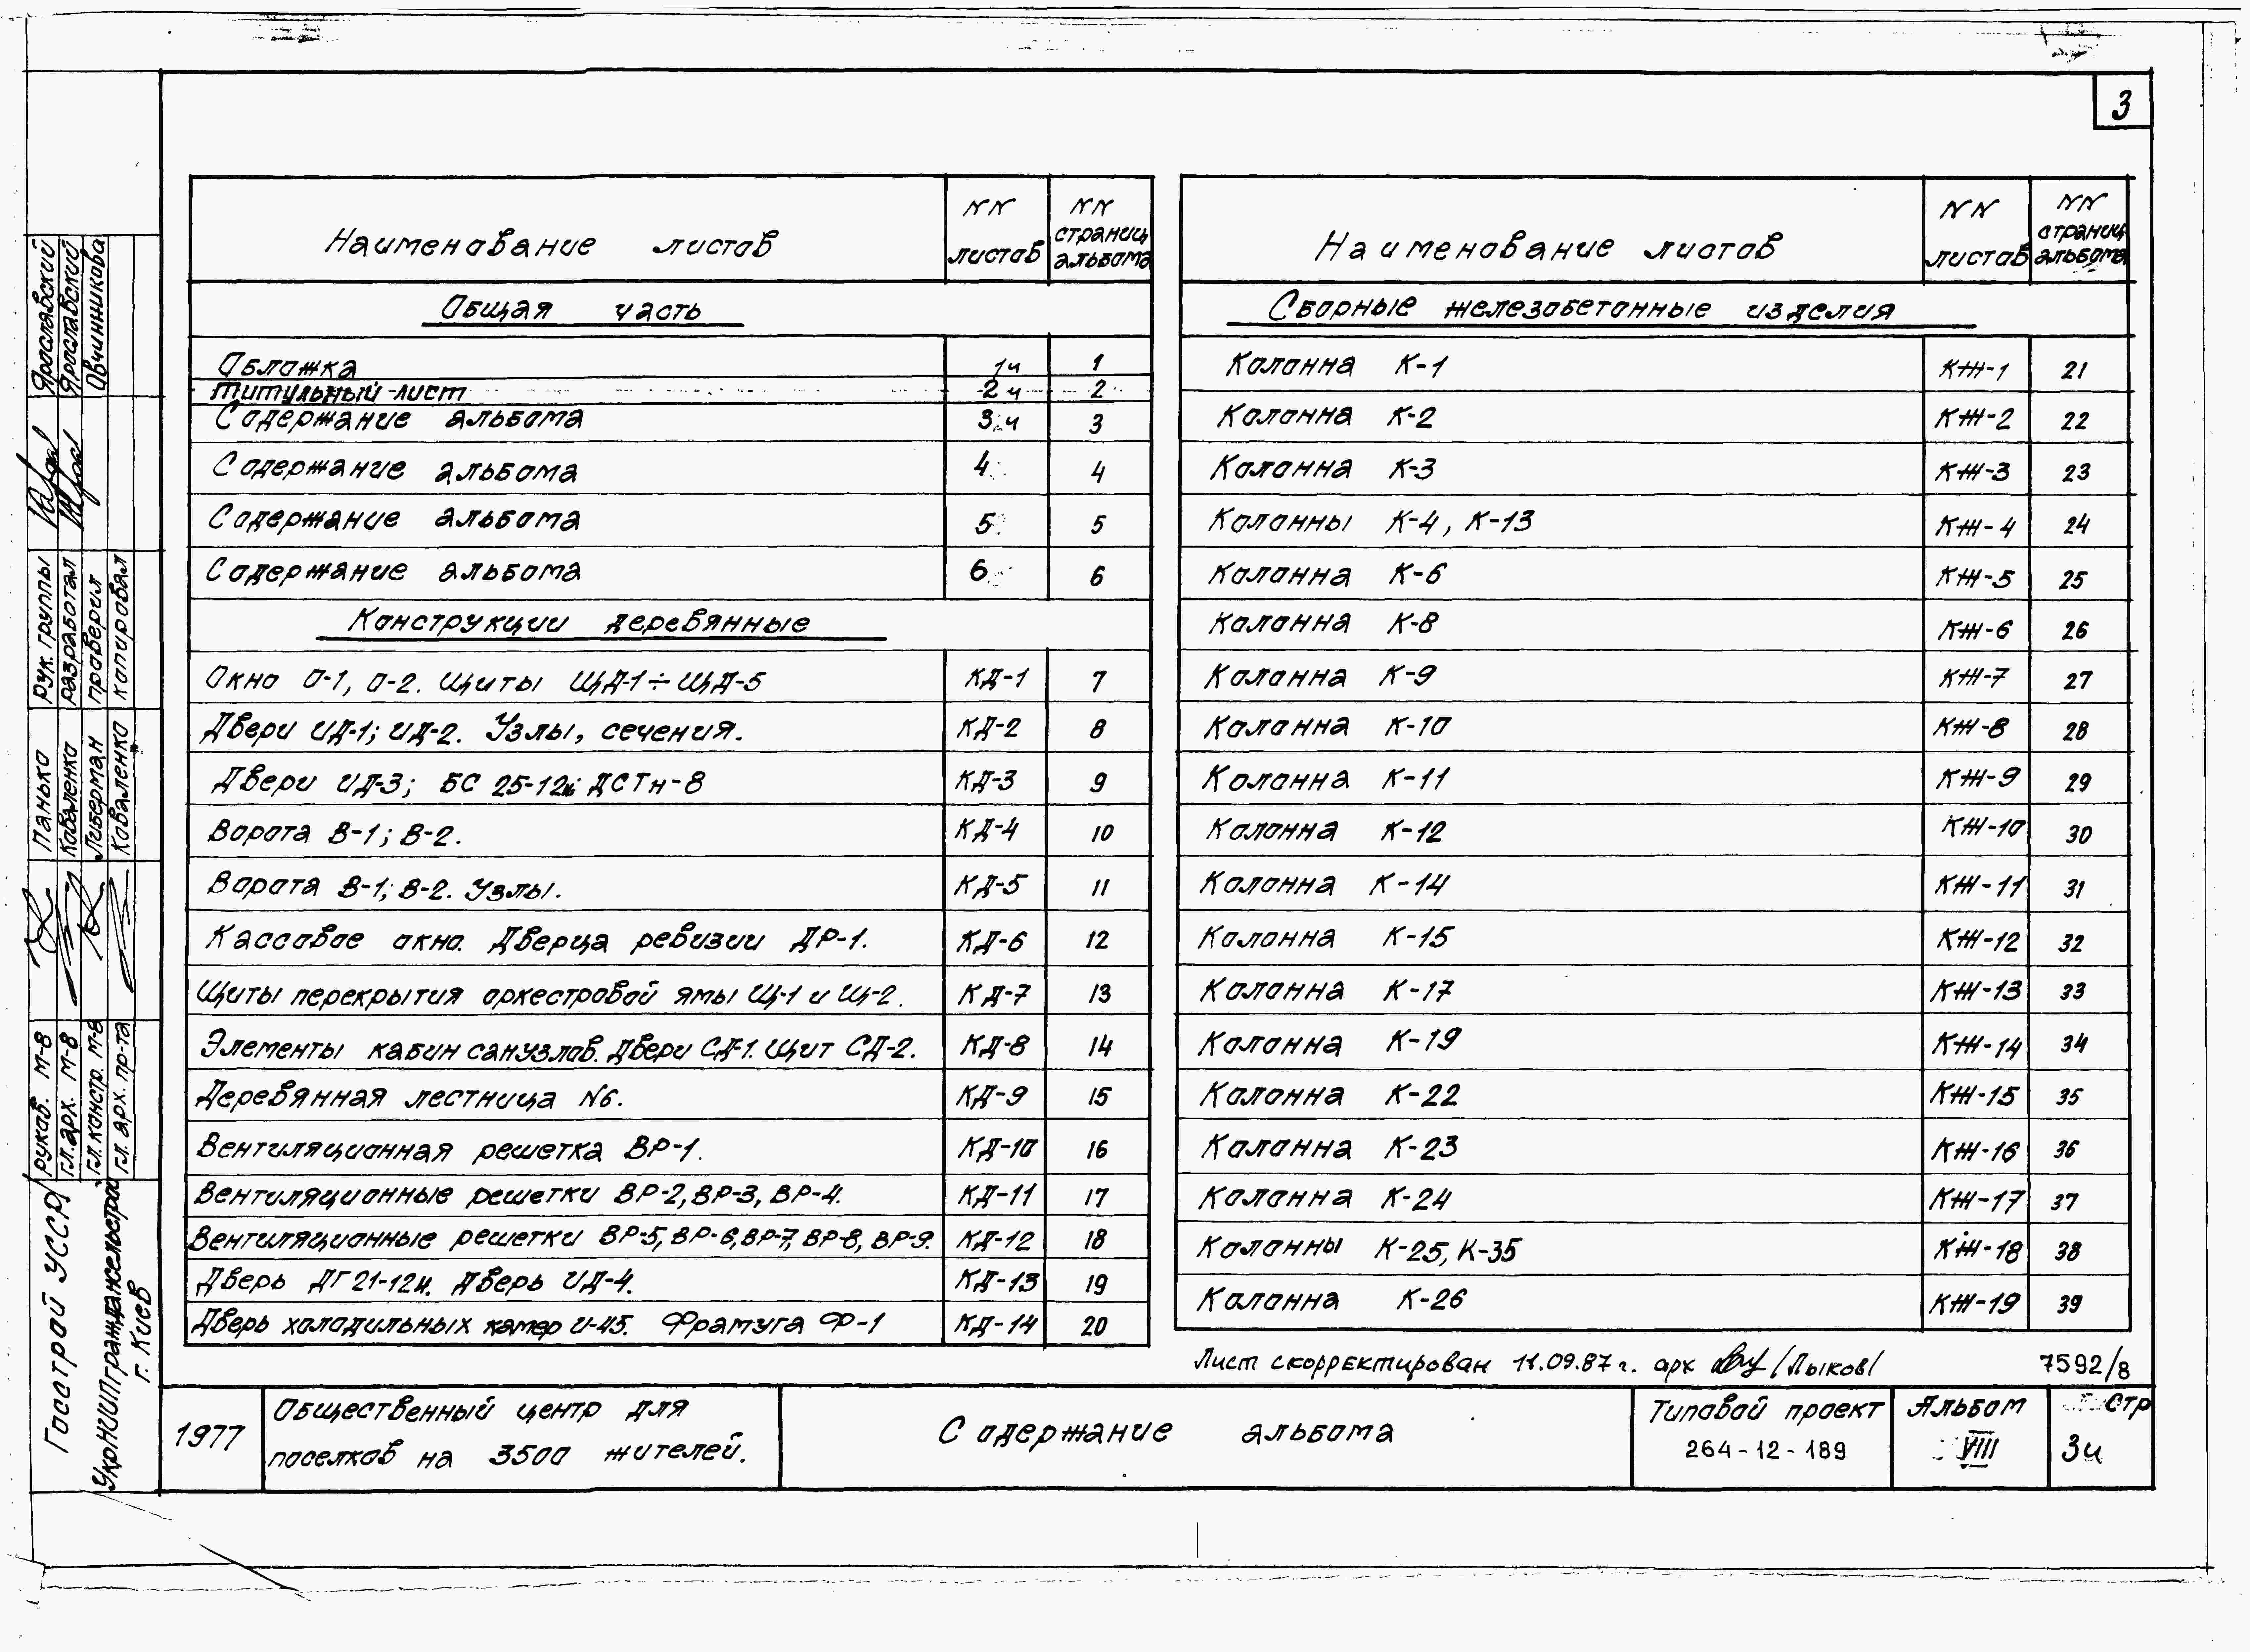 3
Наименование листов
NN листов
NN страниц альбома
Общая часть
Обложка 1и 1
Титульный лист 2и 2
Содержание альбома 3и 3
Содержание альбома 4 4
Содержание альбома 5 5
Содержание альбома 6 6
Конструкции деревянные
Окно О-1, О-2. Щиты ЩД-1÷ЩД-5 КД-1 7
Двери ИД-1; ИД-2. Узлы, сечения. КД-2 8
Двери ИД-3; БС 25-12и; ДСТн-8 КД-3 9
Ворота В-1; В-2. КД-4 10
Ворота В-1; В-2. Узлы. КД-5 11
Кассовое окно. Дверца ревизии ДР-1. КД-6 12
Щиты перекрытия оркестровой ямы Щ-1 и Щ-2. КД-7 13
Элементы кабин санузлов. Двери СД-1. Щит СД-2. КД-8 14
Деревянная лестница N6. КД-9 15
Вентиляционная решетка ВР-1. КД-10 16
Вентиляционные решетки ВР-2, ВР-3, ВР-4. КД-11 17
Вентиляционные решетки ВР-5, ВР-6, ВР-7, ВР-8, ВР-9. КД-12 18
Дверь ДГ 21-12и. Дверь ИД-4. КД-13 19
Дверь холодильных камер И-45. Фрамуга Ф-1 КД-14 20
Наименование листов
NN листов
NN страниц альбома
Сборные железобетонные изделия
Колонна К-1 КЖ-1 21
Колонна К-2 КЖ-2 22
Колонна К-3 КЖ-3 23
Колонны К-4, К-13 КЖ-4 24
Колонна К-6 КЖ-5 25
Колонна К-8 КЖ-6 26
Колонна К-9 КЖ-7 27
Колонна К-10 КЖ-8 28
Колонна К-11 КЖ-9 29
Колонна К-12 КЖ-10 30
Колонна К-14 КЖ-11 31
Колонна К-15 КЖ-12 32
Колонна К-17 КЖ-13 33
Колонна К-19 КЖ-14 34
Колонна К-22 КЖ-15 35
Колонна К-23 КЖ-16 36
Колонна К-24 КЖ-17 37
Колонны К-25, К-35 КЖ-18 38
Колонна К-26 КЖ-19 39
Лист скорректирован 11.09.87г. арх /Лыков/
7592/8
1977
Общественный центр для
поселков на 3500 жителей.
Содержание альбома
Типовой проект
264-12-189
Альбом
VIII
Стр
3и
Госстрой УССР
УкрНИИПграждансельстрой
г. Киев
руков. М-8
гл. арх. М-8
гл. констр. М-8
гл. арх. пр-та
Панько
Коваленко
Либерман
Коваленко
рук. группы
разработал
проверил
копировал
Ярославский
Ярославский
Овчинникова